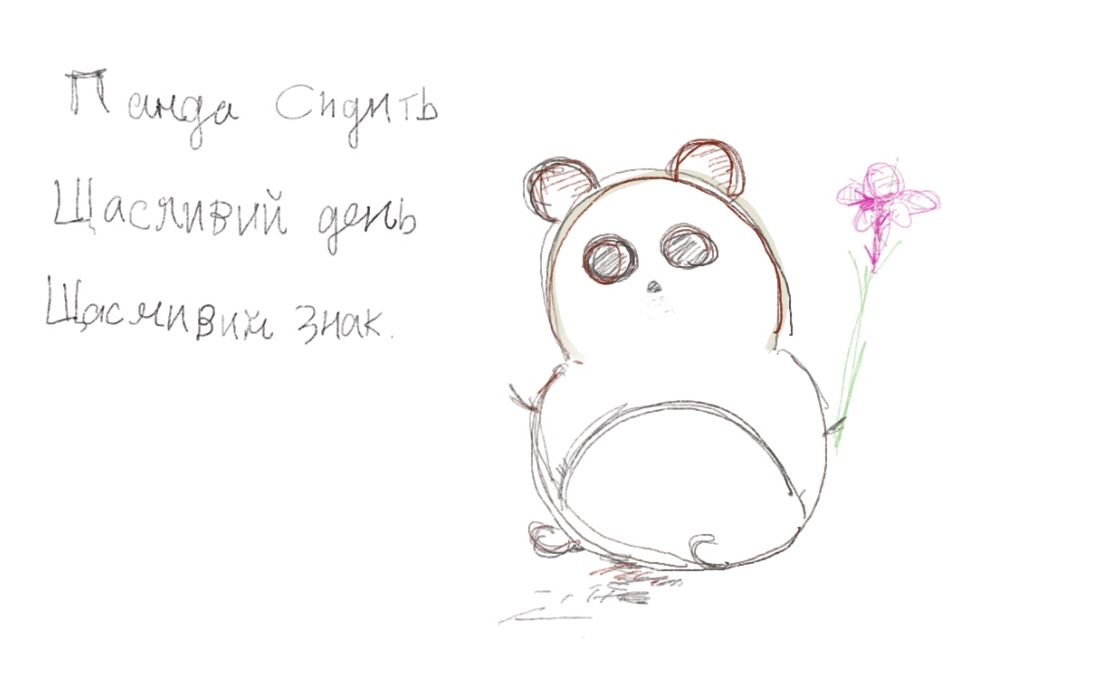 Панда сидить
Щасливий день
Щасливий знак.